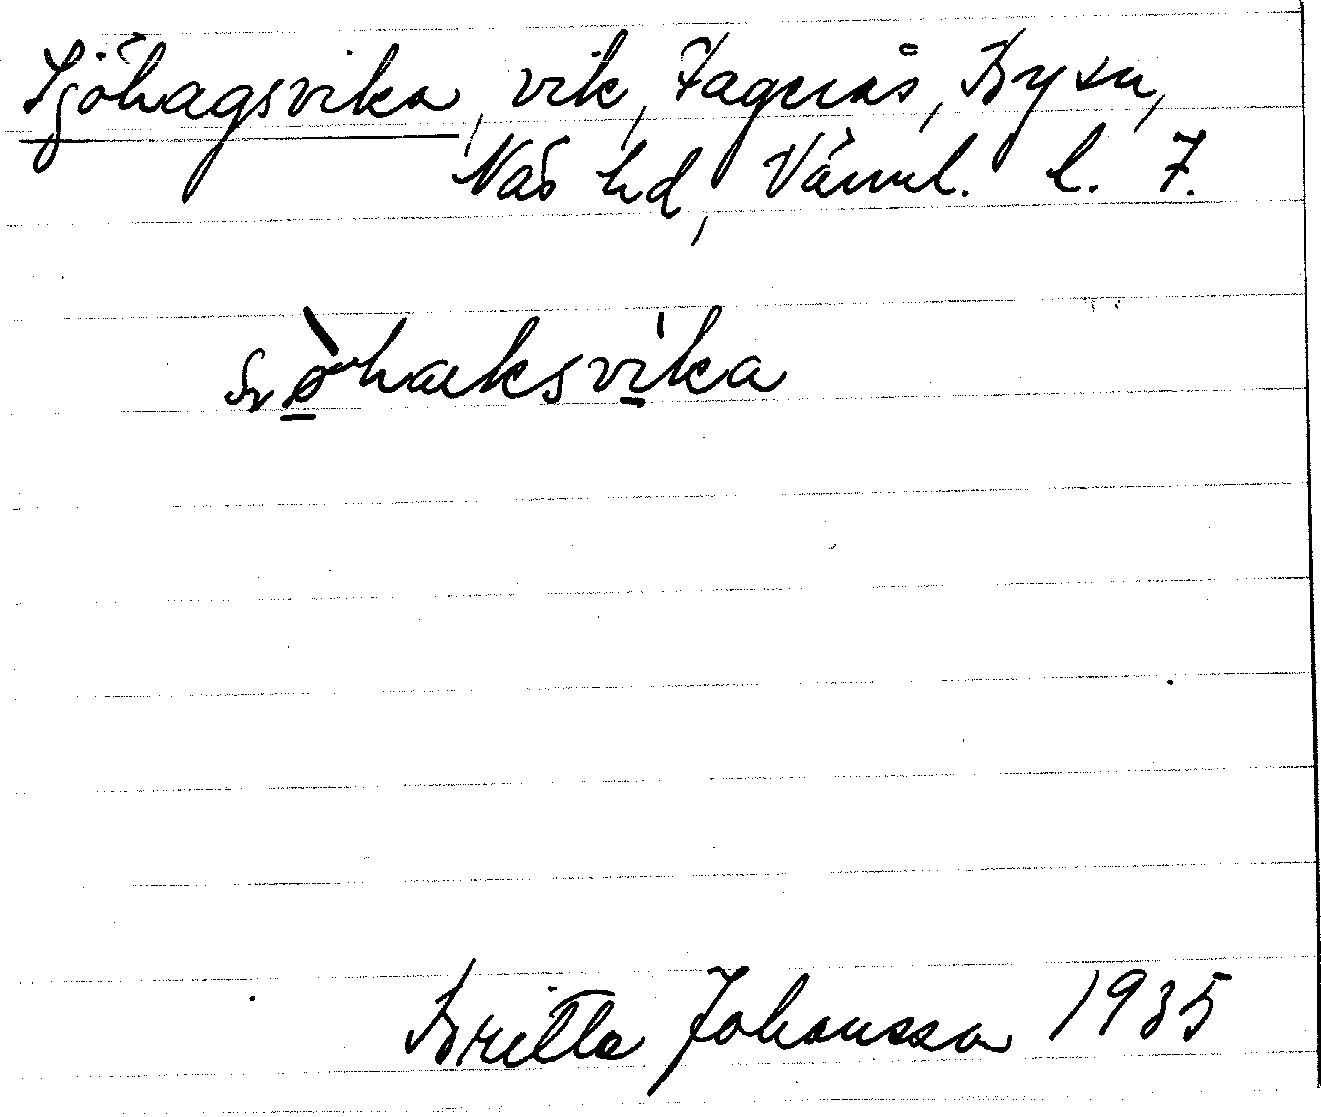 Sjöhagsvika, vik, Fagerås, By sn,
Näs hd, Värml. l. 7.
sɷ̀haksvíka
Britta Johansson 1935